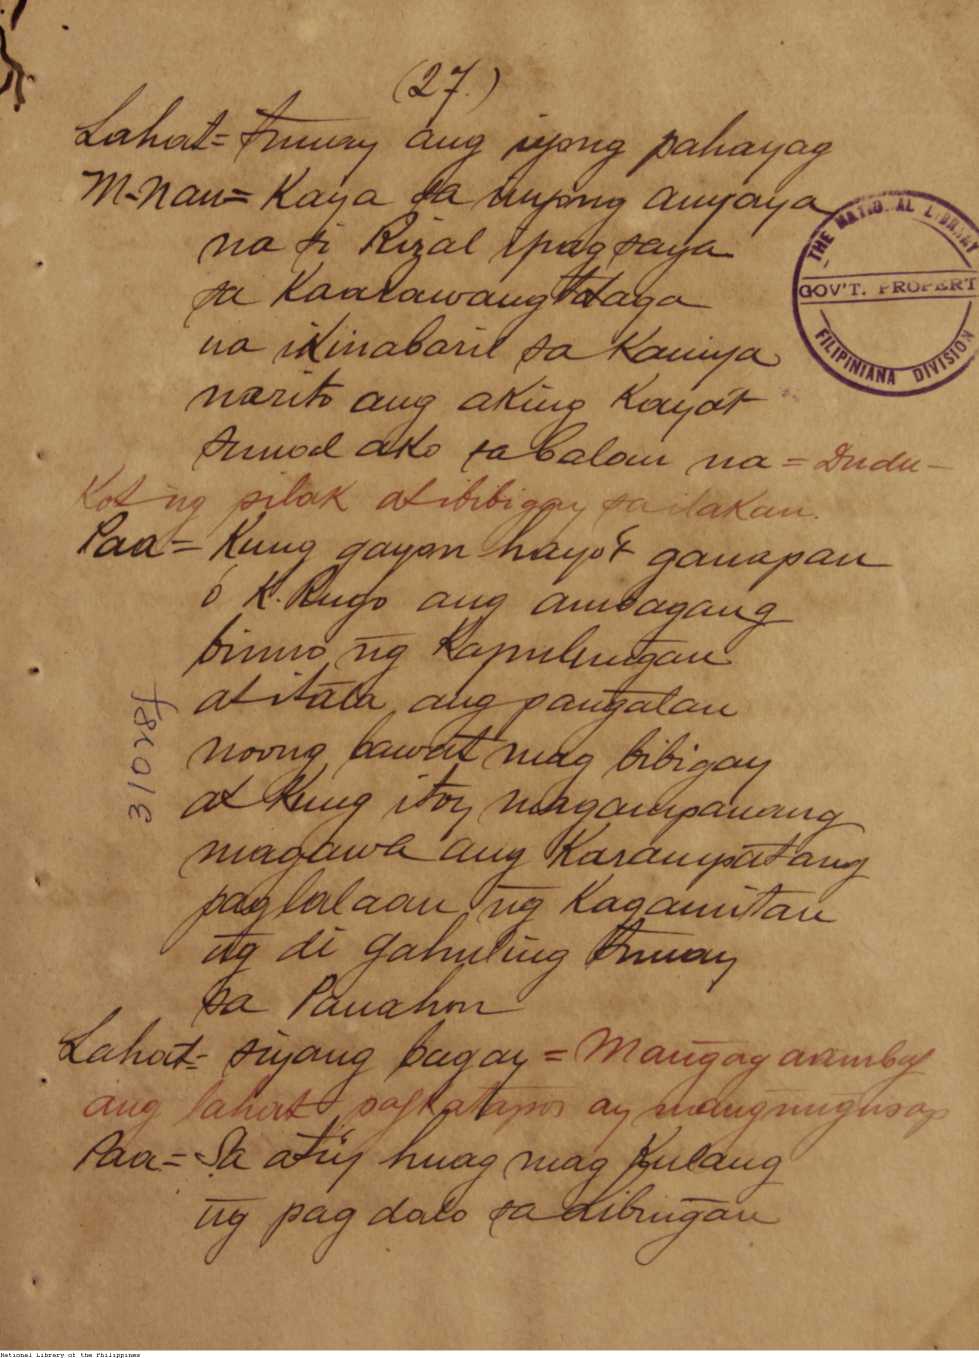 (27.)
Lahat = tunay ang iyong pahayag
M-Nan = Kaya sa inyong anyaya
na si Rizal ipagsaya
sa Kaarawang taga
na iKinabaril sa Kaniya
narito ang aKing Kayat
sunod aKo sa balan na = Dudu-
Kot ng pilaK at ibibigay sa ilaKan.
Paa = Kung gayon hayo't ganapan
ó K. Rugo ang ambagang
ng Kapulungan
at itala ang pangalan
noong bawat mag bibigay
at Kung itoy magampanang
magawa ang Karampatang
paglalaan ng Kagamitan
ng di gahuling tunay
sa Panahon
Lahat = siyang bagay = Mangag aambag
ang lahat pagKatapos ay mangungusap
Paa = Sa atin huag mag Kulang
ng pag dalo sa libingan
31028
THE NATIONAL LIBRARY
GOV'T. PROPERT
FILIPINIANA DIVISION
National Library of the Philippines